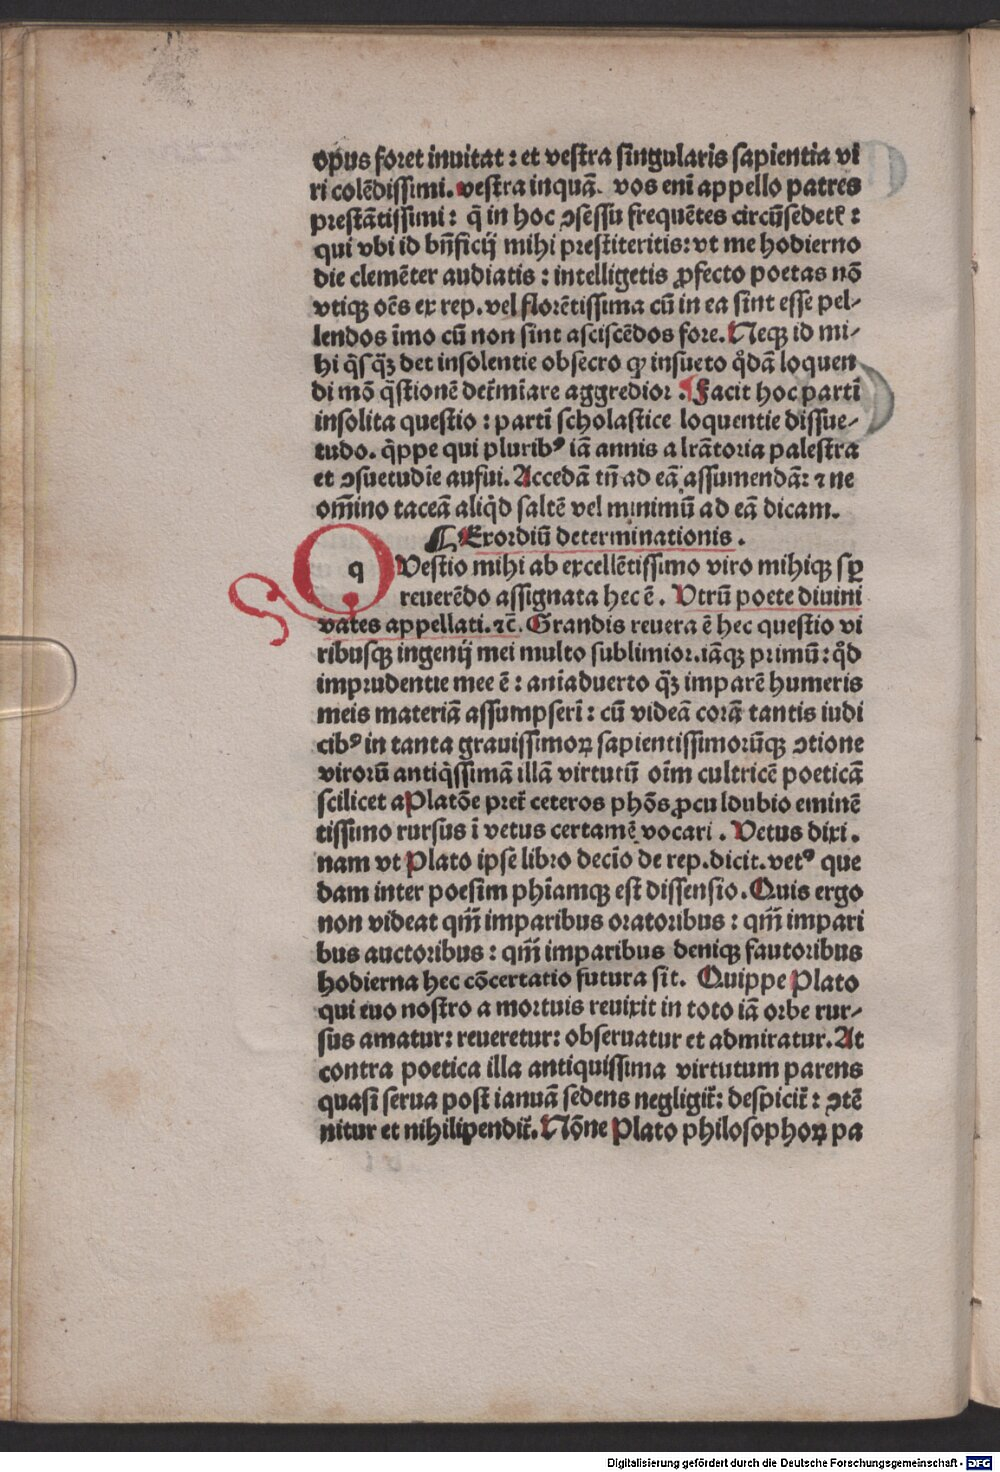 opus foret inuitat: et vestra singularis sapientia vi
ri colēdissimi. vestra inquā. vos eni appello patres
prestātissimi: q̄ in hoc ↄsessu frequētes circūsedetꝭ:
qui vbi id bn̄ficij mihi prestiteritis: vt me hodierno
die clemēter audiatis: intelligetis ꝓfecto poetas nō
vtiqꝫ oēs ex rep. vel florētissima cū in ea sint esse pel-
lendos īmo cū non sint asciscēdos fore. Neqꝫ id mi-
hi q̄sqꝫ̄ det insolentie obsecro ꝙ insueto qͦdā loquen
di mō q̄stionē determīare aggredior. Facit hoc partī
insolita questio: partī scholastice loquentie dissue-
tudo. q̄ppe qui pluribꝰ iā annis a lrātoria palestra
et ↄsuetudīe aufui. Accedā tn̄ ad eā assumendā: ⁊ ne
om̄ino taceā aliqͥd saltē vel minimū ad eā dicam.
Exordiū determinationis.
QVestio mihi ab excellētissimo viro mihiqꝫ sꝑ
reuerēdo assignata hec ē. Vtrū poete diuini
vates appellati. ⁊c̄. Grandis reuera ē hec questio vi
ribusqꝫ ingenij mei multo sublimior. iāqꝫ primū: qͦd
imprudentie mee ē: aniaduerto qꝫ̄ imparē humeris
meis materiā assumpserī: cū videā corā tantis iudi
cibꝰ in tanta grauissimoꝝ sapientissimorūqꝫ ↄtione
virorū antiqͥssimā illā virtutū oīm cultricē poeticā
scilicet a Platōe preter̄ ceteros phōs ꝓcu ldubio eminē
tissimo rursus ī vetus certamē vocari. Vetus dixi.
nam vt Plato ipse libro decīo de rep. dicit. vetꝰ que
dam inter poesim phīamqꝫ est dissensio. Quis ergo
non videat qm̄ imparibus oratoribus: qm̄ impari
bus auctoribus: qm̄ imparibus deniqꝫ fautoribus
hodierna hec cōcertatio futura sit. Quippe Plato
qui euo nostro a mortuis reuixit in toto iā orbe rur-
sus amatur: reueretur: obseruatur et admiratur. At
contra poetica illa antiquissima virtutum parens
quasi serua post ianuā sedens negligit̄: despicit̄: ↄtē
nitur et nihilipendit̄. Nōne Plato philosophoꝝ pa
Digitalisierung gefördert durch die Deutsche Forschungsgemeinschaft - DFG